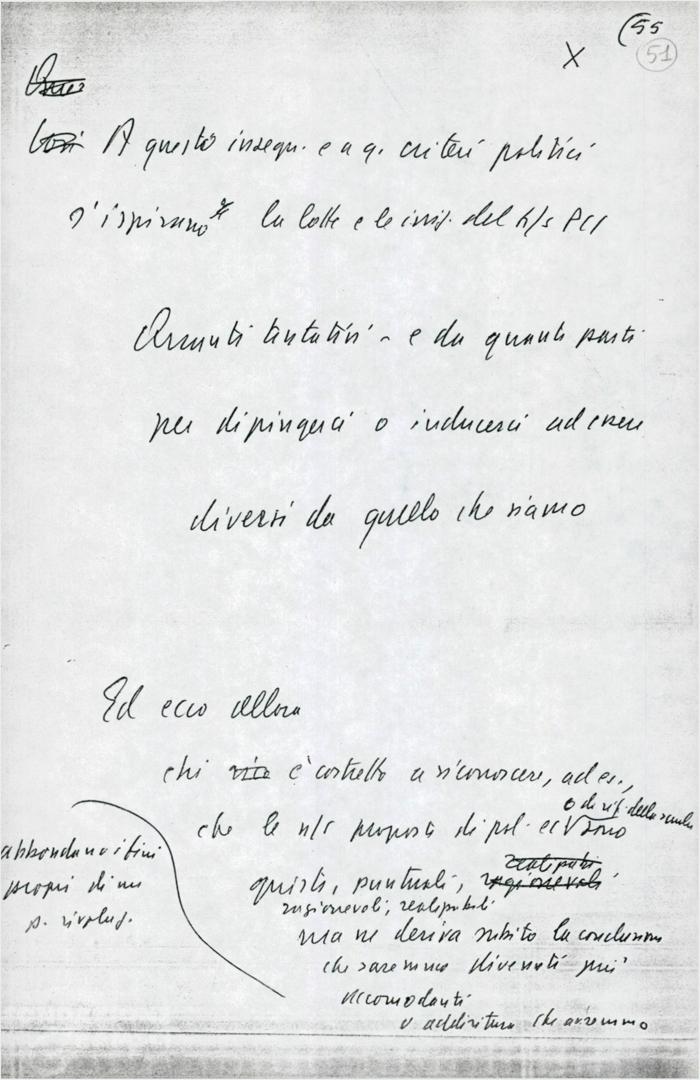 (55
51
X
A questi insegn. e a q. criteri politici
s'ispirano* la lotta e le iniz. del n/s PCI
Quanti tentativi - e da quanti parti
per dipingerci o indurci ad essere
diversi da quello che siamo
Ed ecco allora
chi è costretto a riconoscere, ad es.,
o di rif. della scuola
che le n/s proposte di pol. ec. sono
giusti, puntuali,
ragionevoli, realizzabili
ma ne deriva subito la conclusione
che saremmo divenuti più
accomodanti
o addirittura che avremmo
abbandonato i fini
propri di un
p. rivoluz.